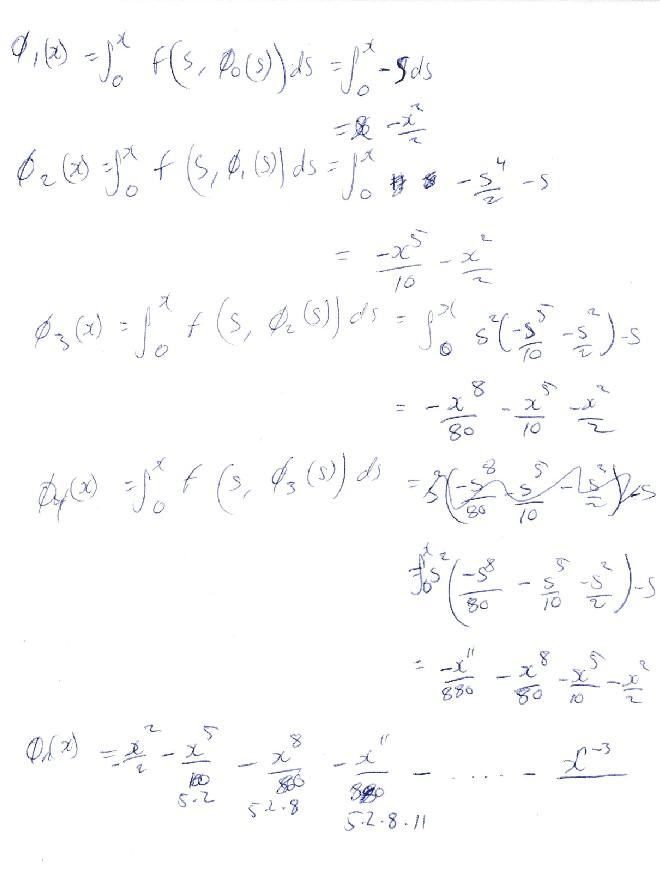 ϕ₁(x) = ∫₀ˣ f(s, ϕ₀(s)) ds = ∫₀ˣ -s ds
= -x²/2
ϕ₂(x) = ∫₀ˣ f(s, ϕ₁(s)) ds = ∫₀ˣ -s⁴/2 - s
= -x⁵/10 - x²/2
ϕ₃(x) = ∫₀ˣ f(s, ϕ₂(s)) ds = ∫₀ˣ s²(-s⁵/10 - s²/2) - s
= -x⁸/80 - x⁵/10 - x²/2
ϕ₄(x) = ∫₀ˣ f(s, ϕ₃(s)) ds =
= ∫₀ˣ s²(-s⁸/80 - s⁵/10 - s²/2) - s
= -x¹¹/880 - x⁸/80 - x⁵/10 - x²/2
(x) = -x²/2 - x⁵/5.2 - x⁸/5.2.8 - x¹¹/5.2.8.11 - ..... -